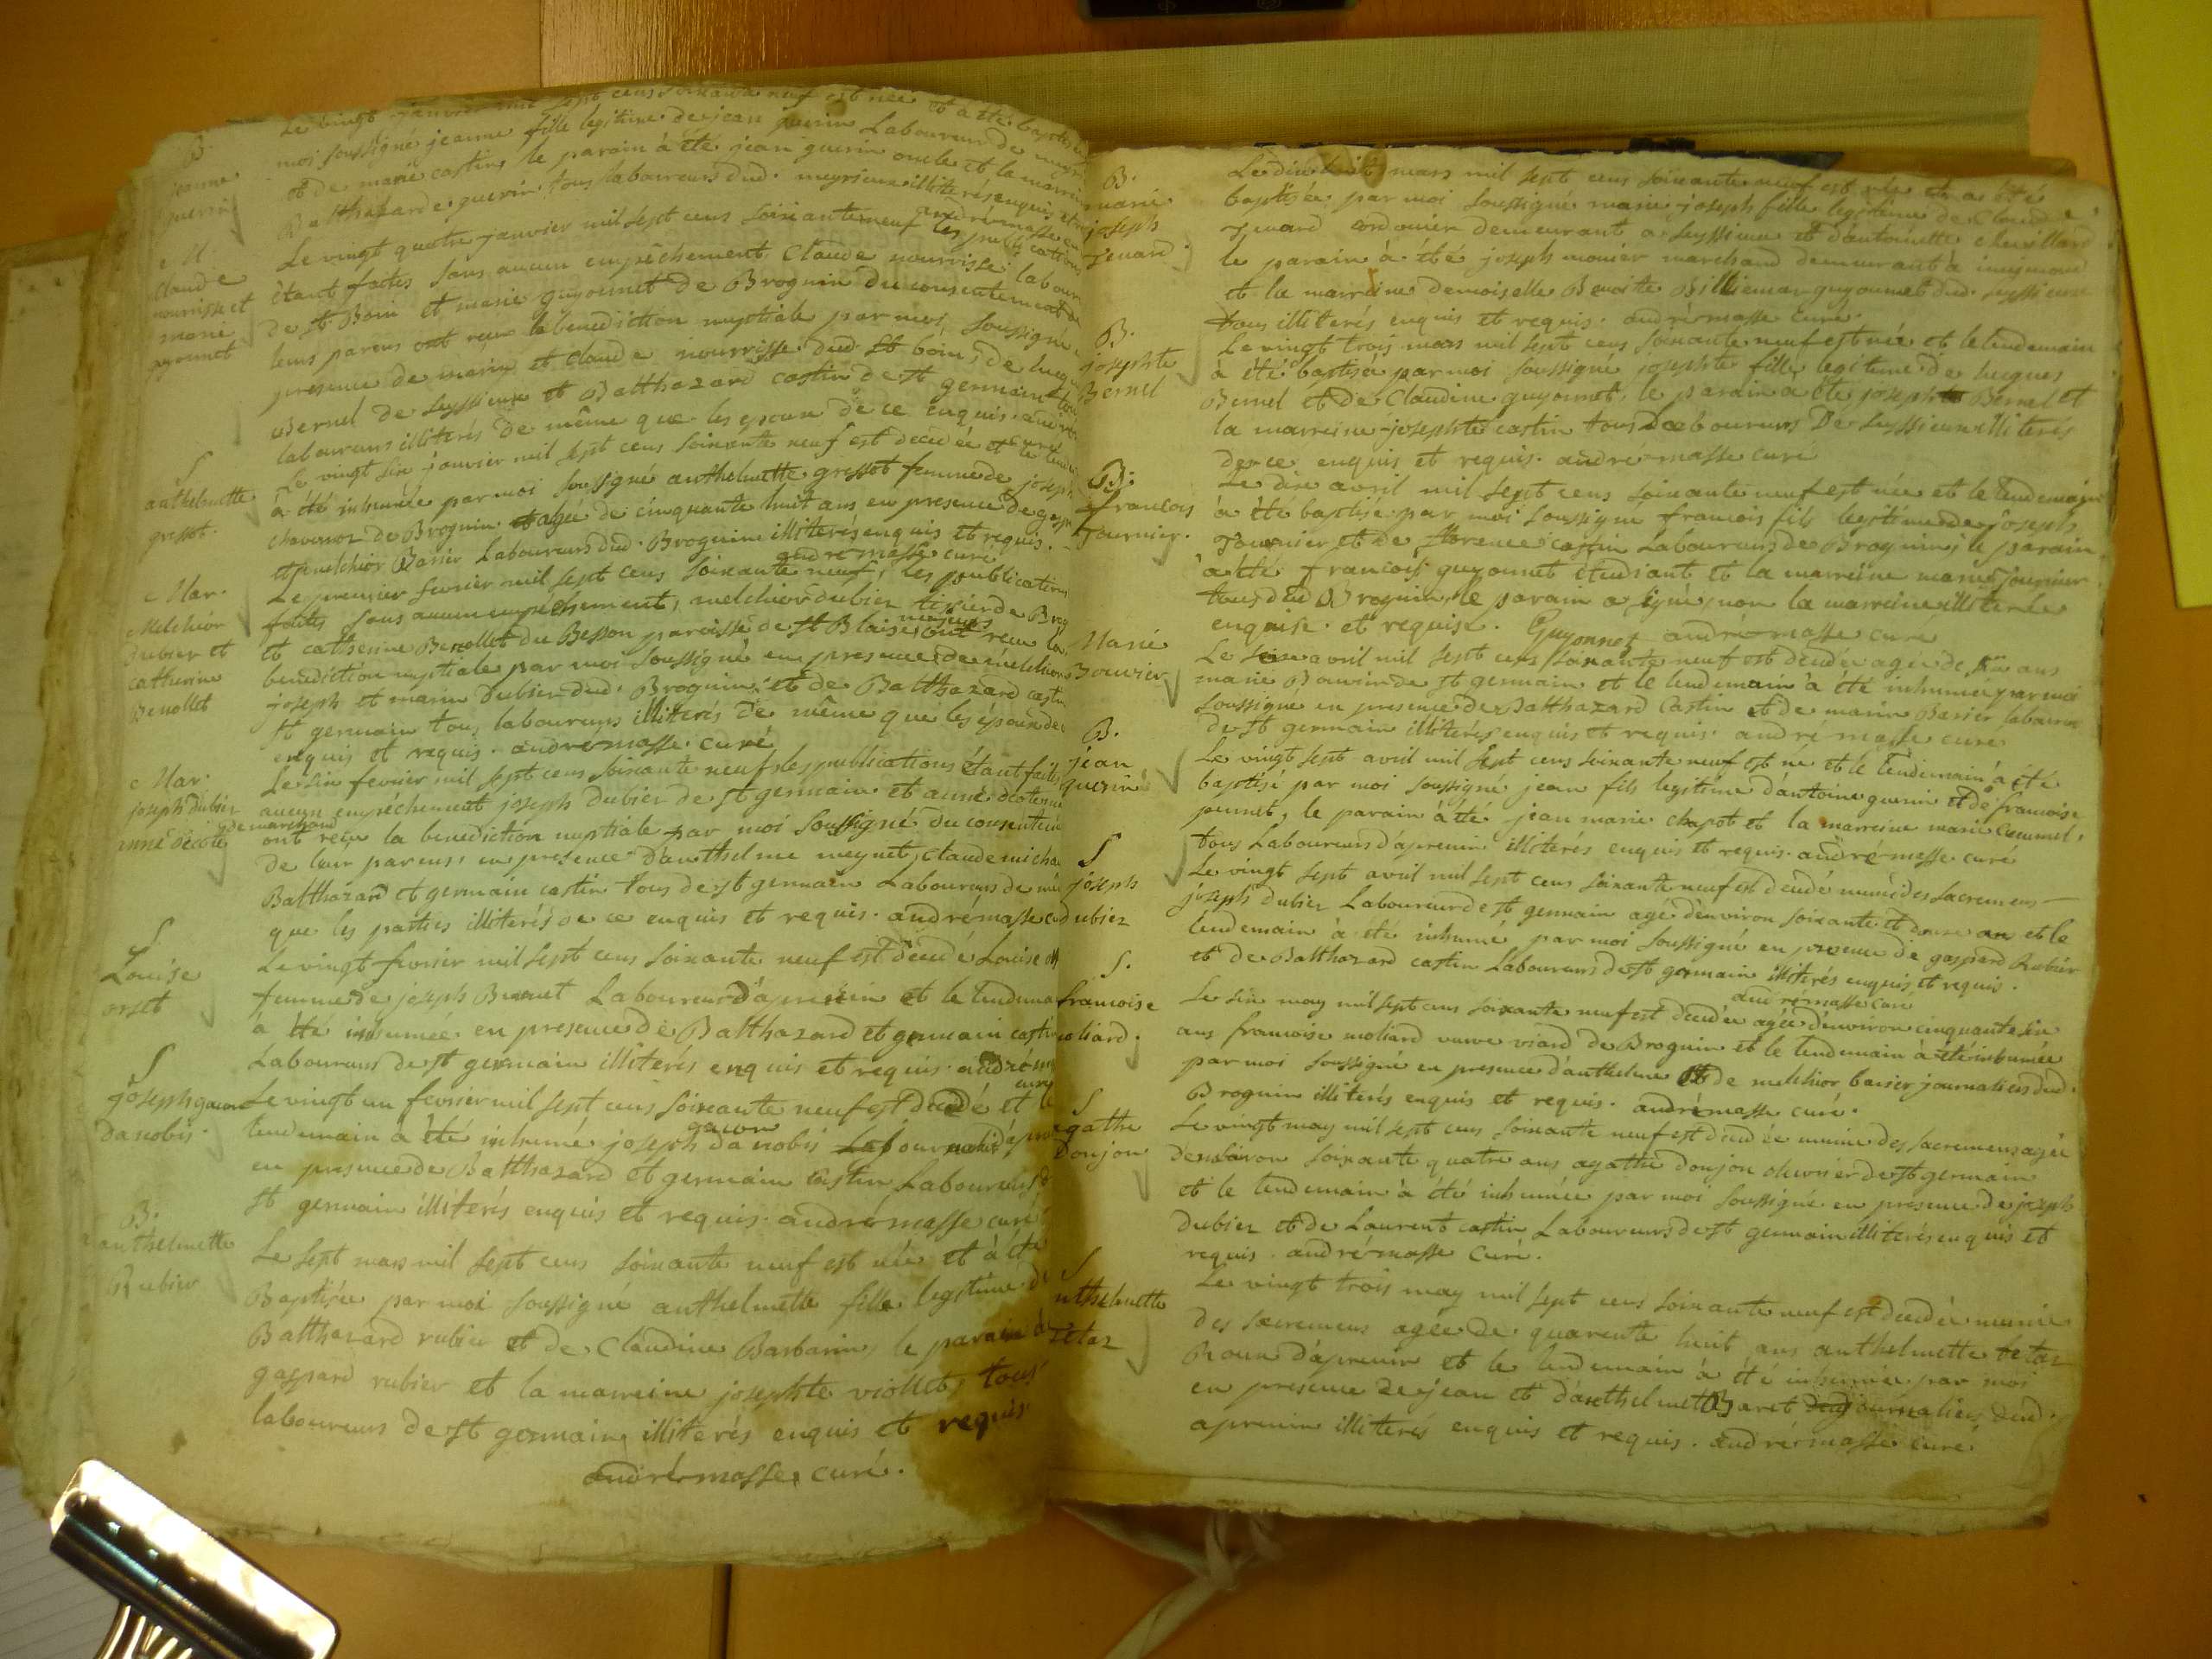 B.
jeanne
guerin
Le vingt janvier mil sept cens soixante neuf est née et a été baptisée
moi soussigné jeanne fille legitime de jean guerin Laboureur de
et de marie castin, le parain à été jean guerin oncle et la marreine
Balthazarde guerin tous laboureurs dud. meyrieux illiterés enquis et
andré masse
M
Claude
nourrisse et
marie
guyonnet
Le vingt quatre janvier mil sept cens soixante neuf les publications
étant faites sans aucun empêchement Claude nourrisse labour
de st Boin et marie guyonnet de Brognin du consentement de
leurs parens ont reçu la benediction nuptiale par moi soussigné
presence de marin et claude nourrisse dud. st boin, de
Bernel de seyssieux et Balthazard castin de st germain
laboureurs illiterés de même que les epoux de ce enquis
S
anthelmette
grissot.
Le vingt six janvier mil sept cens soixante neuf est decedée et le
à été inhumée par moi soussigné anthelmette grissot femme de joseph
chavanoz de Brognin agée de cinquante huit ans en presence de
et melchior Barier Laboureurs dud. Brognin illiterés enquis et requis.
andré masse curé
Mar.
Melchior
Dubier et
catherine
Benollet
Le premier fevrier mil sept cens soixante neuf, les publications
faites sans aucun empéchement, melchior dubier tissier de
et catherine Benollet du Besson paroisse de st Blaise ont reçu la
benediction nuptiale par moi soussigné en presence de melchior
joseph et marin dubier dud. Brognin, et de Balthazard castin
st germain tous laboureurs illiterés de même que les époux de
enquis et requis. andré masse curé
Mar.
joseph dubier
anne décote
Le six fevrier mil sept cens soixante neuf les publications étant faites
aucun empéchement joseph dubier de st germain et anne
de marchand
ont reçu la benediction nuptiale par moi soussigné du consentem
de leur parens, en presence d'anthelme meynet, claude micha
Balthazard et germain castin tous de st germain Laboureurs de
que les parties illiterés de ce enquis et requis. andré masse
S
Louise
orset
Le vingt fevrier mil sept cens soixante neuf est decedé Louise
femme de joseph Laboureur d'apremin et le lendemain
à été inhumée en presence de Balthazard et germain castin
Laboureurs de st germain illiterés enquis et requis. andré
curé
S
joseph gacon
danobis.
Le vingt un fevrier mil sept cens soixante neuf est decedé et le
gacon
lendemain à été inhumé joseph danobis
en presence de Balthazard et germain castin Laboureurs
st germain illiterés enquis et requis. andré masse curé
B.
anthelmette
Rubier
Le sept mars mil sept cens soixante neuf est née et à été
Baptisée par moi soussigné anthelmette fille legitime de
Balthazard rubier et de Claudine Barbarin, le parain à
gaspard rubier et la marreine josephte viollet, tous
laboureurs de st germain, illiterés enquis et requis
andré masse, curé.
B.
marie
joseph
Jenard
Le dix huit mars mil sept cens soixante neuf est née et a été
baptisée par moi soussigné marie joseph fille legitime de Claude
Jenard cordonier demeurant a seyssieux et d'antoinette
le parain à été joseph monier marchand demeurant à
et la marreine demoiselle Benoite guyonnet dud. seyssieux
tous illiterés enquis et requis. andré masse curé.
B.
josephte
Bernel
Le vingt trois mars mil sept cens soixante neuf est née et le lendemain
à été baptisée par moi soussigné josephte fille legitime de hugues
Bernel et de Claudine guyonnet, le parain a été joseph Bernel et
la marreine josephte castin tous Laboureurs de seyssieux illiterés
de ce enquis et requis. andré masse curé
B.
Francois
Fournier.
Le dix avril mil sept cens soixante neuf est née et le lendemain
à été baptisé par moi soussigné francois fils legitime de joseph
Fournier et de florence castin Laboureurs de Brognin, le parain
à été francois guyonnet étudiant et la marreine marie fournier
tous dud Brognin, le parain a signé, non la marreine illiterée
enquise et requise. Guyonnet andré masse curé
Marie
Bouvier
Le avril mil sept cens soixante neuf est decedée agée de six ans
marie Bouvier de st germain et le lendemain à été inhumée par moi
soussigné en presence de Balthazard castin et de marin Barier laboureur
de st germain illiterés enquis et requis. andré masse curé
B.
jean
guerin
Le vingt sept avril mil sept cens soixante neuf est né et le lendemain à été
baptisé par moi soussigné jean fils legitime d'antoine guerin et de francoise
peunet, le parain à été jean marie chapot et la marreine marie
tous Laboureurs d'apremin illiterés enquis et requis. andré masse curé
S
joseph
dubier
Le vingt sept avril mil sept cens soixante neuf est decedé muni des sacremens
joseph dubier Laboureur de st germain agé d'environ soixante et douze an et le
lendemain à été inhumé par moi soussigné en presence de gaspard Rubier
et de Balthazard castin Laboureurs de st germain illiterés enquis et requis.
andré masse curé
S.
francoise
moliard.
Le six may mil sept cens soixante neuf est decedée agée d'environ cinquante six
ans francoise moliard veuve viard de Brognin et le lendemain à été inhumée
par moi soussigné en presence d'anthelme et de melchior barier journaliers dud.
Brognin illiterés enquis et requis. andré masse curé.
S
agathe
Donjon
Le vingt may mil sept cens soixante neuf est decedée munie des sacremens agée
d'environ soixante quatre ans agathe donjon de st germain
et le lendemain à été inhumée par moi soussigné en presence de joseph
dubier et de Laurent castin Laboureurs de st germain illiterés enquis et
requis. andré masse curé.
S
anthelmette
Tétaz
Le vingt trois may mil sept cens soixante neuf est decedée munie
des sacremens agée de quarente huit ans anthelmette tetaz
Roux d'apremin et le lendemain à été inhumée par moi
en presence de jean et d'anthelme Baret journaliers dud.
apremin illiterés enquis et requis. andré masse curé